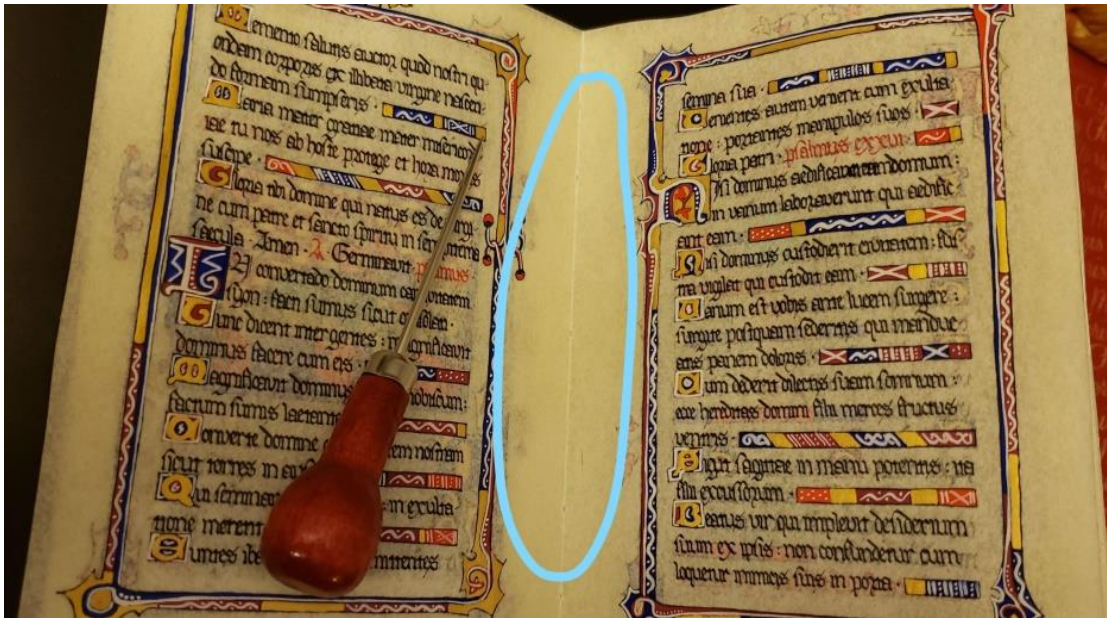 Memento salutis auctor quod nostri qu-
ondam corporis ex illibata virgine nascen-
do formam sumpseris ·
Maria mater gratiae mater misericord
iae tu nos ab hoste protege et hora mortis
suscipe ·
Gloria tibi domine qui natus es de
ne cum patre et sancto spiritu in sempiterna
saecula · Amen · A · Germinavit psalmus
IN convertendo dominum captivitatem
syon : facti sumus sicut consolati ·
Tunc dicent inter gentes : magnificavit
dominus facere cum eis ·
Magnificavit dominus nobiscum :
factum sumus laetantes
Converte domine nostram
sicut torres in aus
Qui seminant in exulta
tione metent
Euntes ibant mittentes
semina sua ·
Venientes autem venient cum exulta
tione : portantes manipulos suos
Gloria patri · psalmus cxxvi ·
Nisi dominus aedificaverit domum :
in vanum laboraverunt qui aedific
ant eam ·
Nisi dominus custodierit civitatem : frus
tra vigilat qui custodit eam ·
Vanum est vobis ante lucem surgere :
surgite postquam sederitis qui manduc
atis panem doloris ·
Cum dederit dilectis suam somnum :
ecce hereditas domini filii merces fructus
ventris ·
Sicut sagittae in manu potentis : ita
filii excussorum ·
Beatus vir qui implevit desiderium
suum ex ipsis : non confundetur cum
loquetur inimicis suis in porta ·